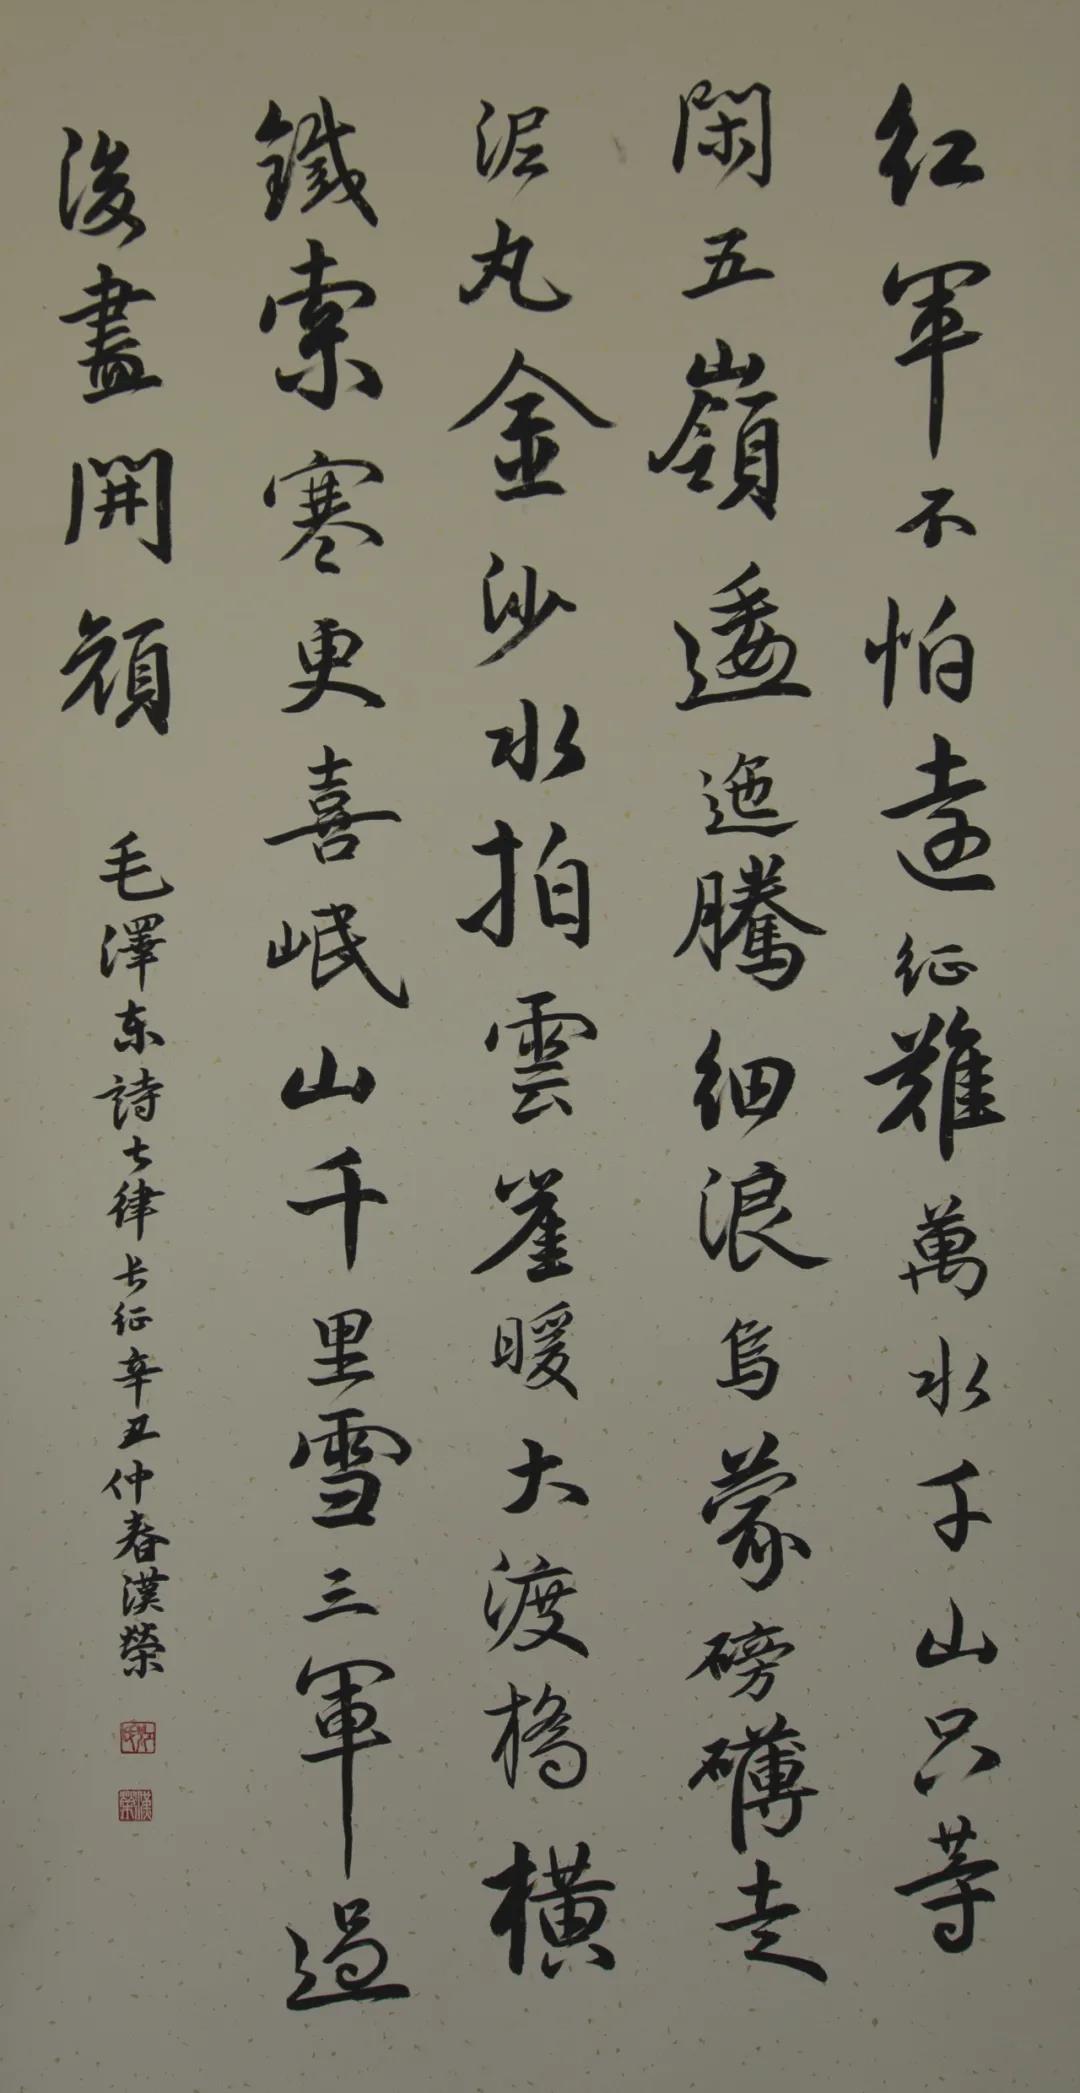 紅軍不怕遠征難萬水千山只等
閑五嶺逶迤騰細浪烏蒙磅礴走
泥丸金沙水拍雲崖暖大渡橋橫
鐵索寒更喜岷山千里雪三軍過
後盡開顏
毛澤东詩七律长征辛丑仲春漢榮
漢榮